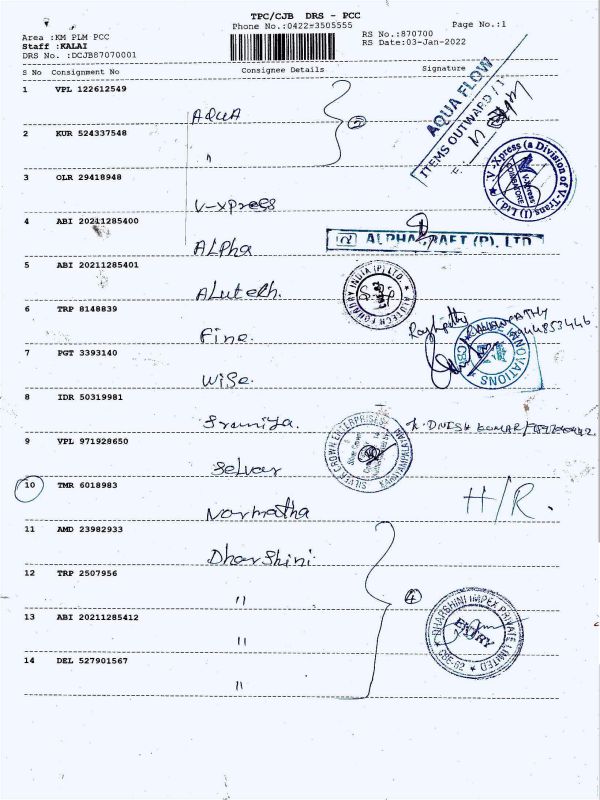 TPC/CJB DRS - PCC
Phone No.:0422-3505555
Page No.:1
Area :KM PLM PCC
Staff :KALAI
DRS No. :DCJB67070001
RS No.:870700
RS Date:03-Jan-2022
S No Consignment No Consignee Details Signature
1 VPL 122612549
AQUA
2
AQUA FLOW
ITEMS OUTWARD / I
2 KUR 524337548
"
V-Xpress (a Division of V-Trans (I) Ltd.)
V-Xpress
COIMBATORE
3 OLR 29418948
V-xpress
4 ABI 20211285400
ALPha
ALPHACRAFT (P). LTD
5 ABI 20211285401
ALutech.
ALUTECH FOUNDRY INDIA (P) LTD.
6 TRP 8148839
Fine.
7 PGT 3393140
Wise.
INNOVATIONS
CBE
8 IDR 50319981
K. DINESH KUMAR
9 VPL 971928650
Selvar
SILVER CROWN ENTERPRISES
10 TMR 6018983
Narmatha
H/R.
11 AMD 23982933
Dharshini.
12 TRP 2507956
"
4
13 ABI 20211285412
"
DHARSHINI IMPEX PRIVATE LIMITED
ENTRY
CBE-62
14 DEL 527901567
"